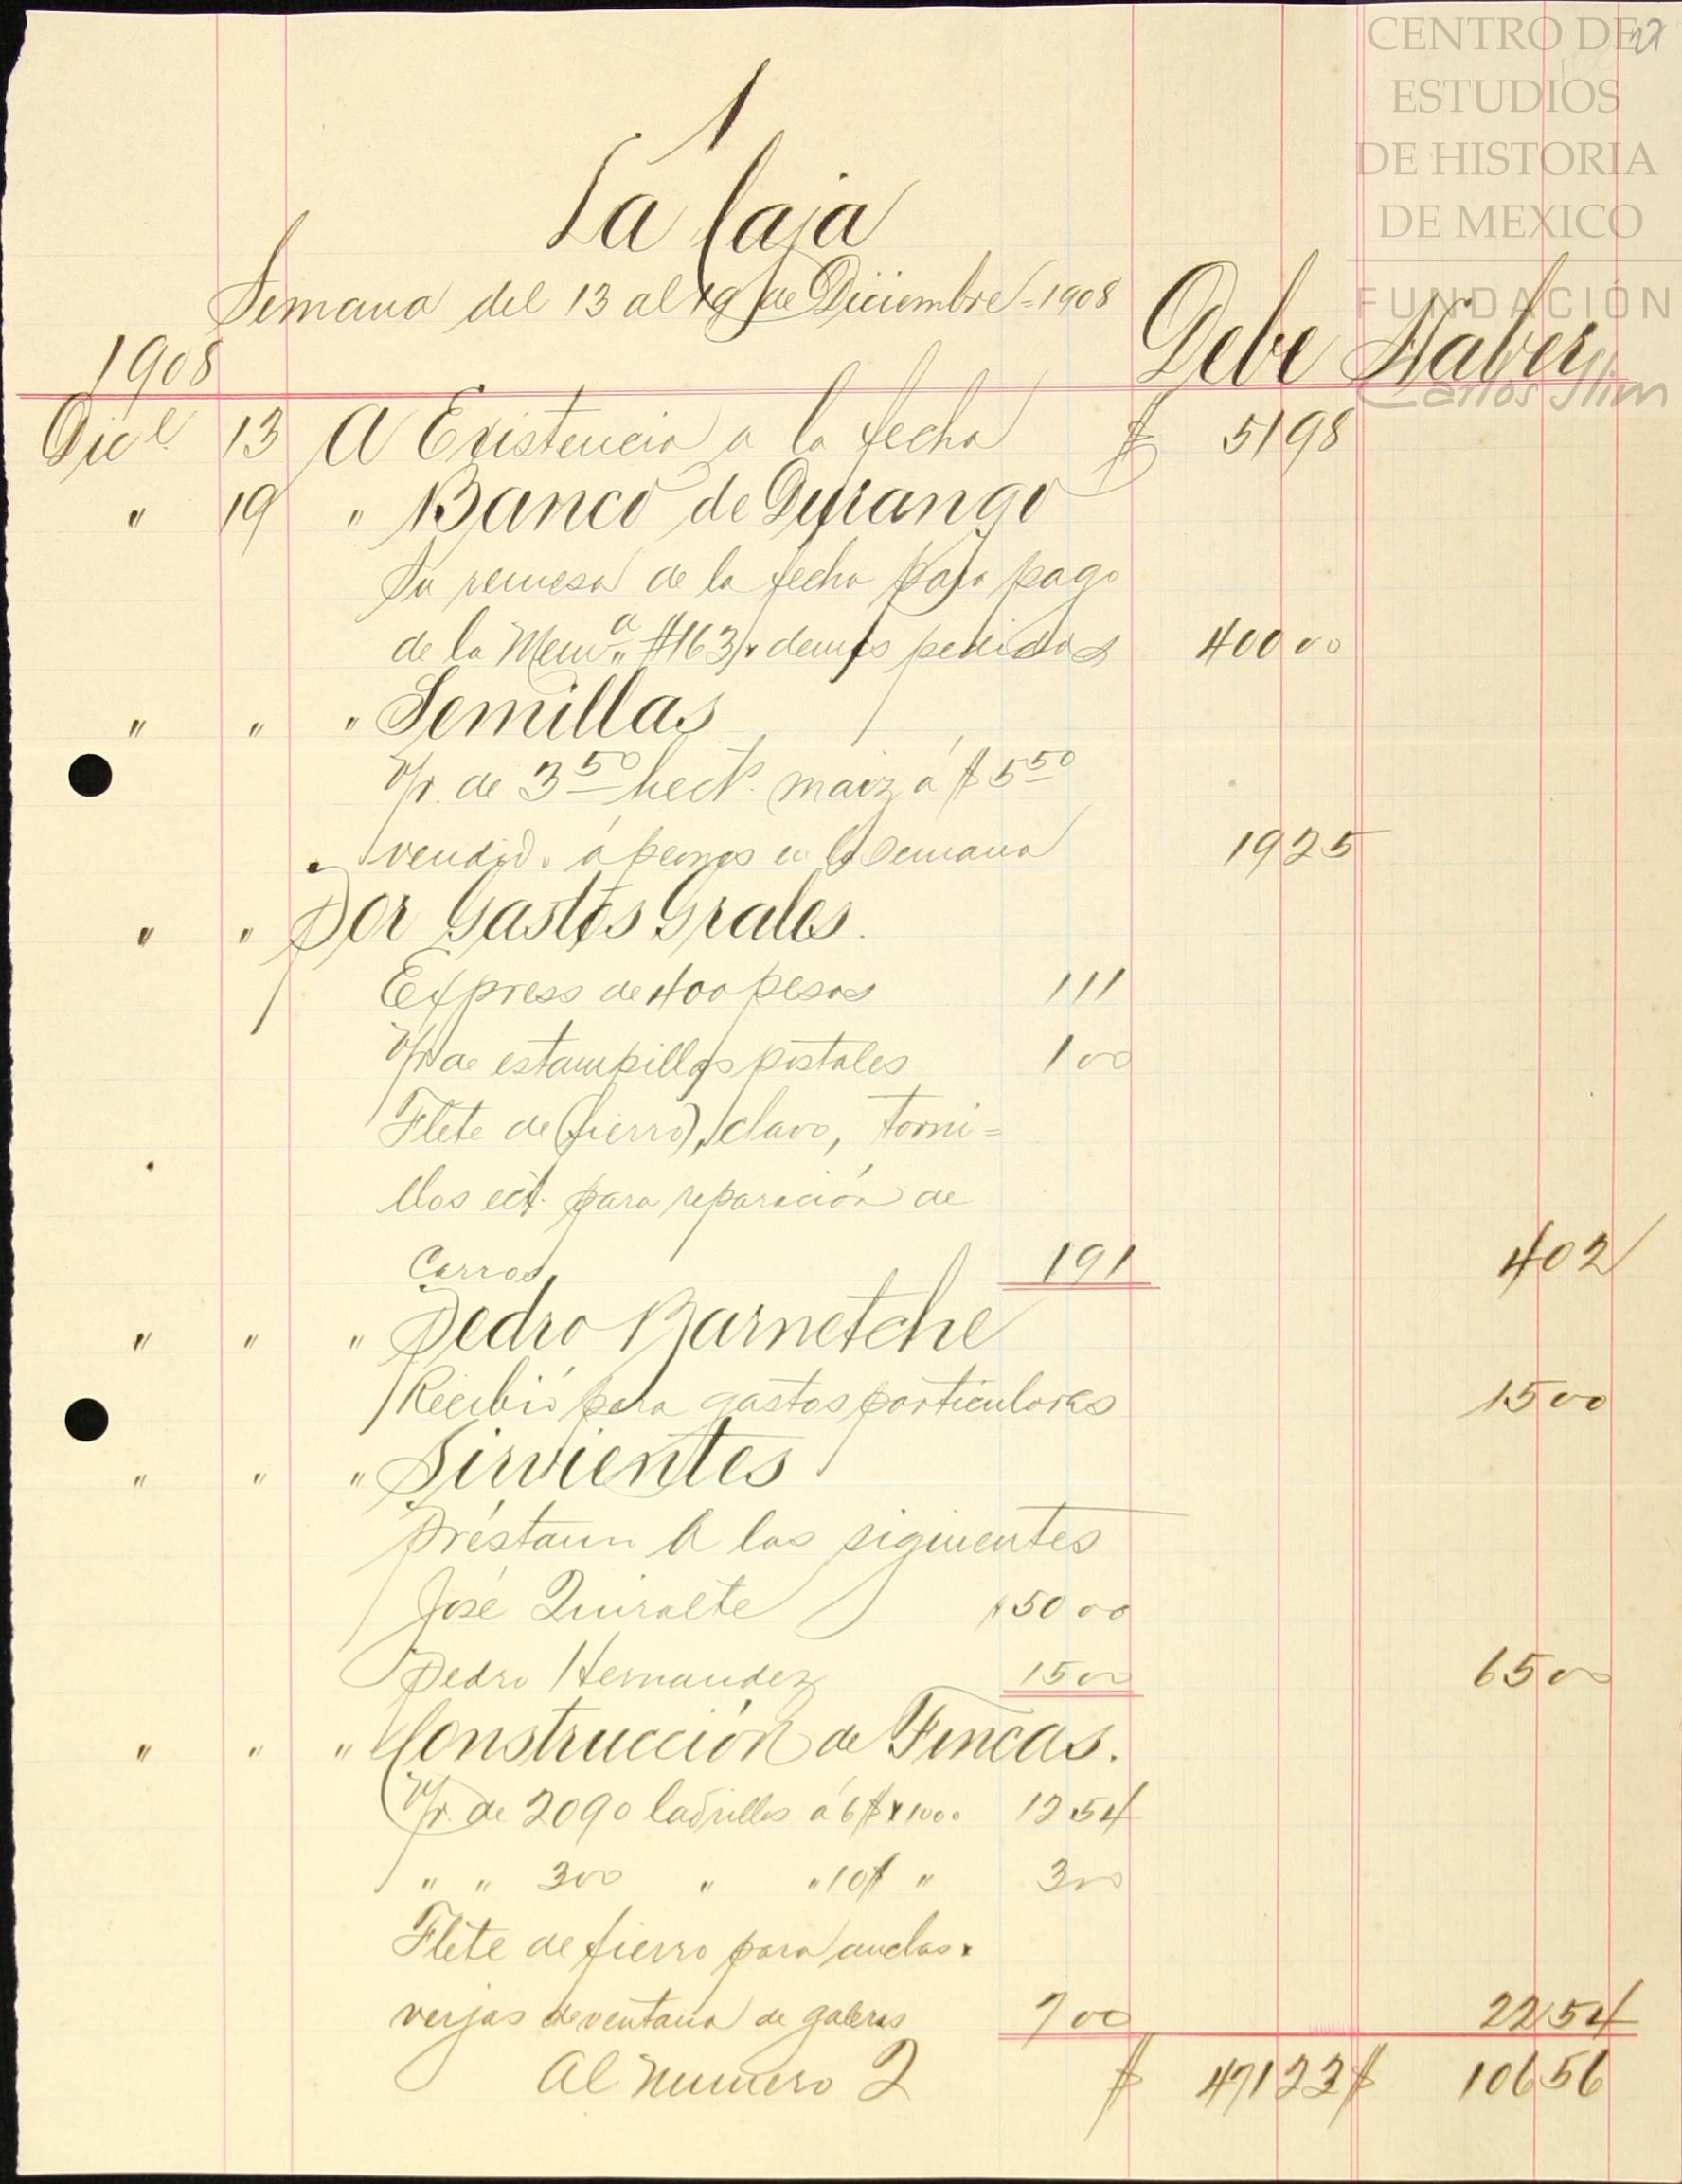 CENTRO DE
ESTUDIOS
DE HISTORIA
DE MEXICO
FUNDACIÓN
Carlos Slim
1
La Caja
Semana del 13 al 19 de Diciembre = 1908
1908 Debe Haber
Dice. 13 A Existencia a la fecha $ 51 98
" 19 " Banco de Durango
Su remesa de la fecha para pago
de la Memª #163 y demas pedidos 400 00
" " " Semillas
V/r. de 3 50 hect. maiz á $5 50
vendid. á peones en la Semana 19 25
" " Por Gastos Grales.
Express de 400 pesos 1 11
V/r de estampillas postales 1 00
Flete de fierro, clavo, torni=
llos ect. para reparación de
Carros 1 91 4 02
" " " Pedro Barnetche
Recibió para gastos particulares 15 00
" " " Sirvientes
Préstamo A los siguientes
José Quiralte $50 00
Pedro Hernandez 15 00 65 00
" " " Construcción de Fincas.
V/r. de 2090 ladrillos á 6$ x 1000 12 54
" " 300 " " 10$ " 3 00
Flete de fierro para anclas y
verjas de ventana de galeras 7 00 22 54
Al Numero 2 $ 471 23 $ 106 56